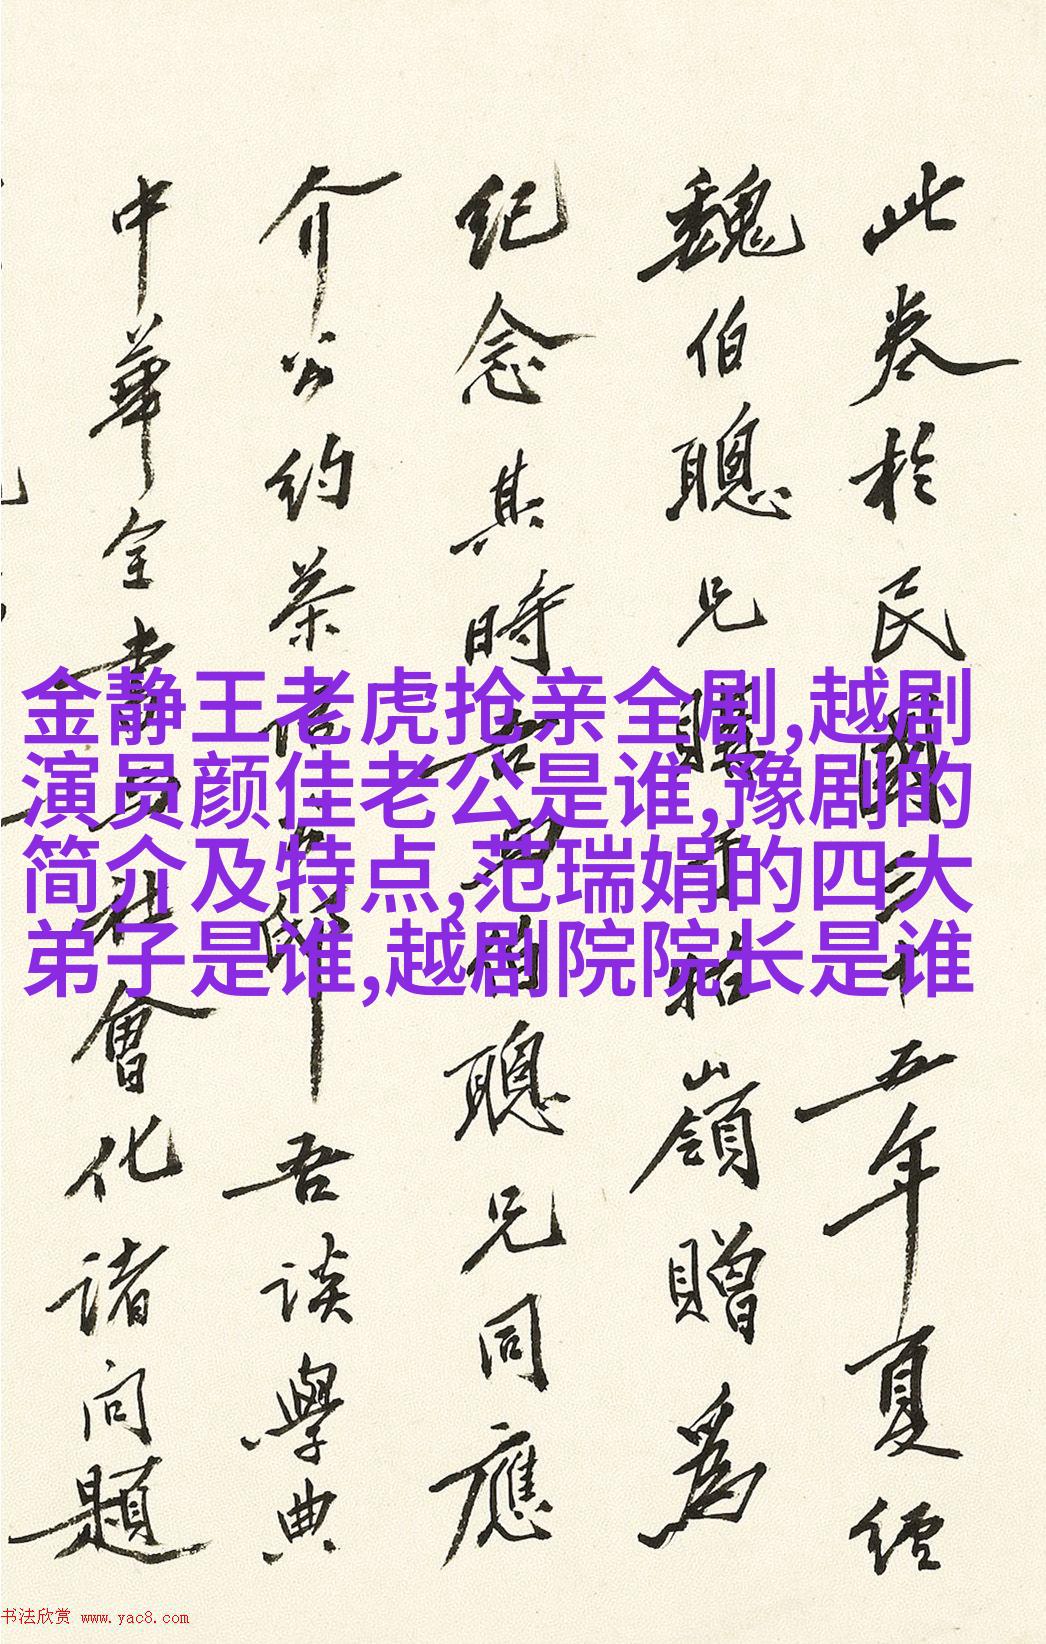 此卷於民國三十五年夏經
魏伯聰兄購于牯嶺贈為
紀念其時吾與伯聰兄同應
介公約茶 邸 吾談學典
中華全書與社會化諸问題
金静王老虎抢亲全剧,越剧
演员颜佳老公是谁,豫剧的
简介及特点,范瑞娟的四大
弟子是谁,越剧院院长是谁
书法欣赏 www.yac8.com